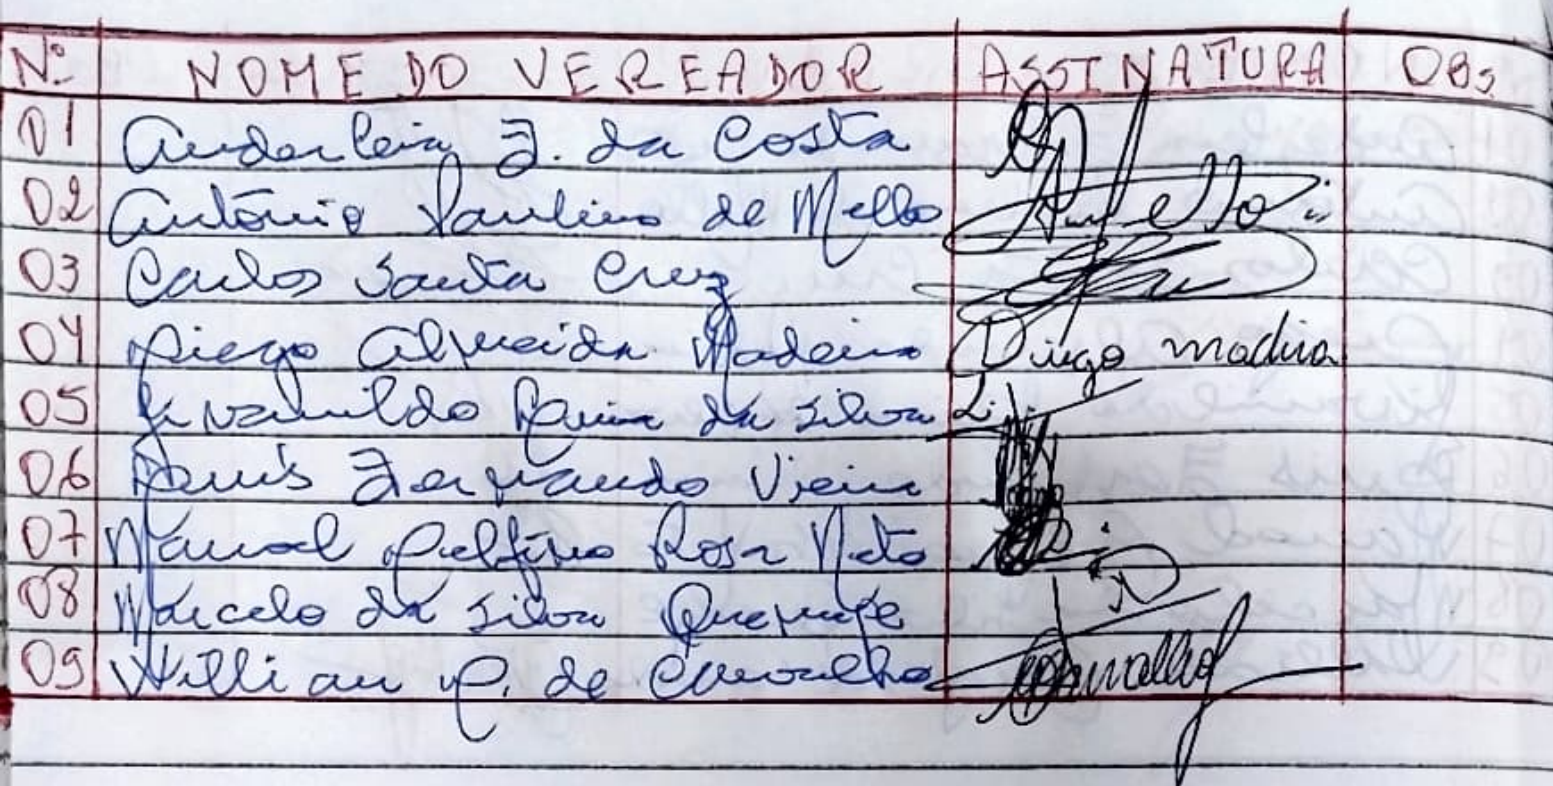 Nº NOME DO VEREADOR ASSINATURA OBS
01 Anderleia F. da Costa
02 Antônio Paulino de Mello AMello
03 Carlos Santa Cruz
04 Diego Almeida Madeira Diego madeira
05 da Silva
06 Luís Fernando Vieira
07 Manoel Delfino Rosa Neto
08 Marcelo da Silva
09 Willian P. de Carvalho Carvalho